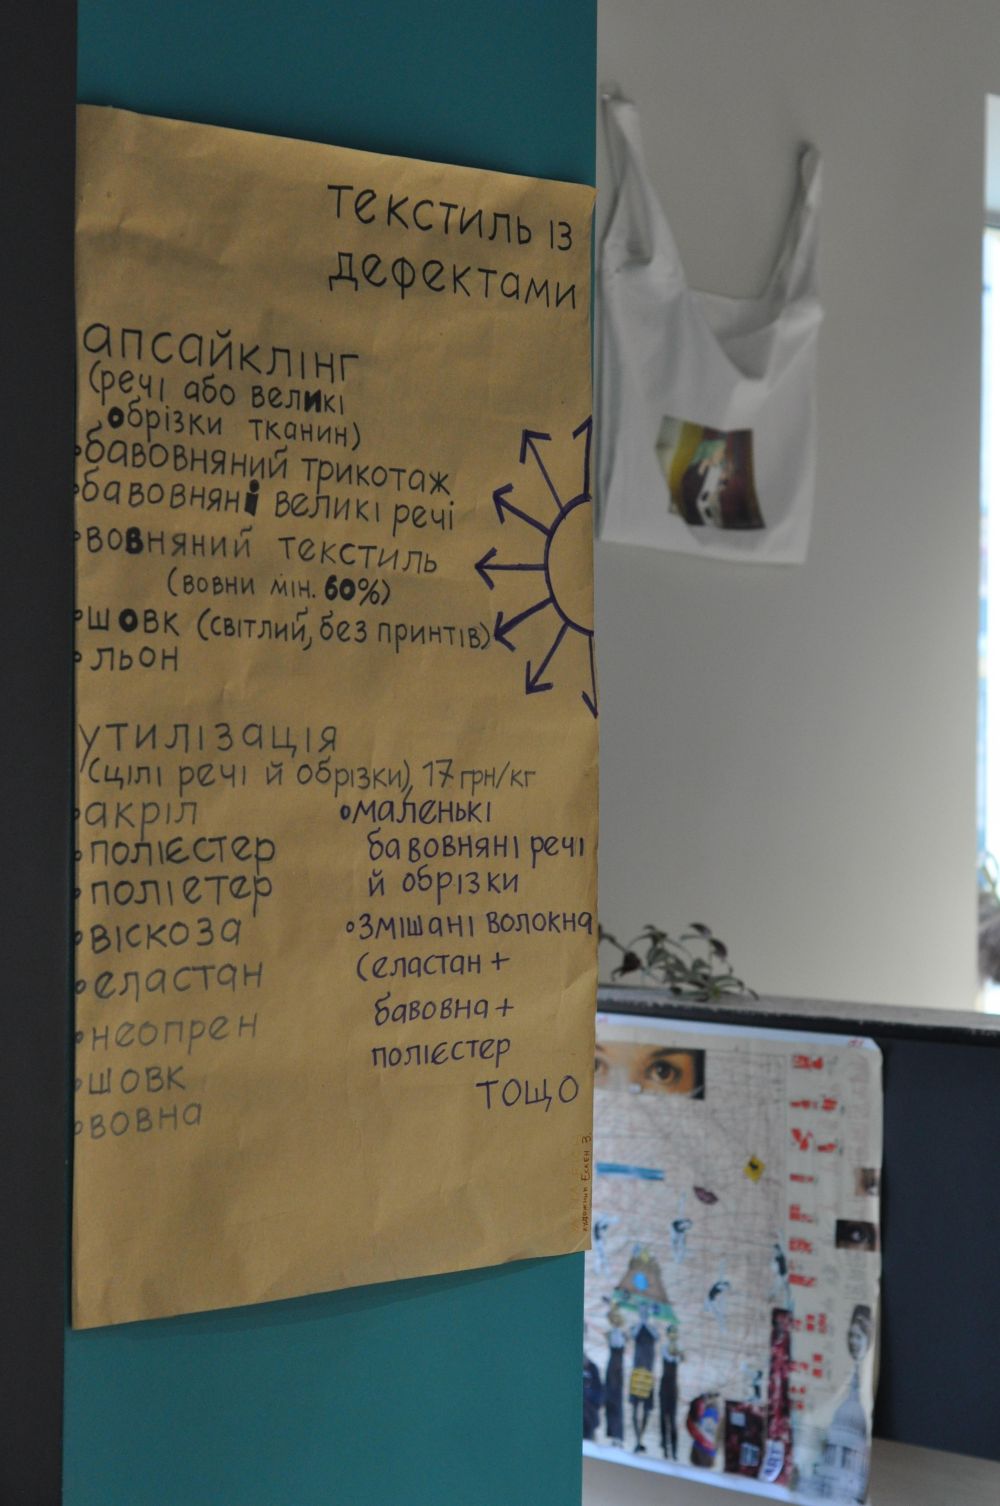 текстиль із
дефектами
апсайклінг
(речі або великі
обрізки тканин)
бавовняний трикотаж
бавовняні великі речі
вовняний текстиль
(вовни мін. 60%)
шовк (світлий, без принтів)
льон
утилізація
(цілі речі й обрізки), 17 грн/кг
акріл
полієстер
поліетер
віскоза
еластан
неопрен
шовк
вовна
маленькі
бавовняні речі
й обрізки
змішані волокна
(еластан +
бавовна +
полієстер
тощо
художник Ескен В.
ART